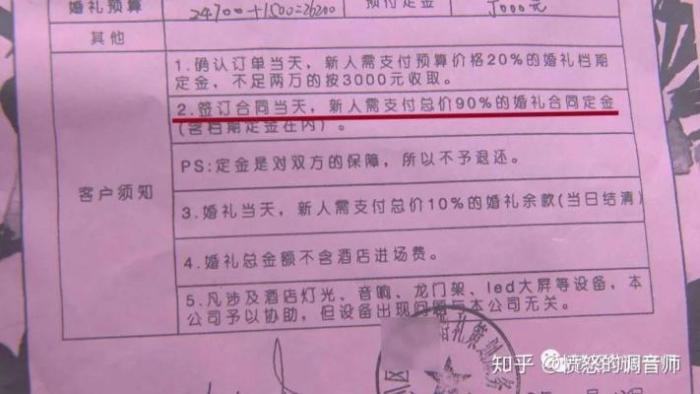 婚礼预算
24700+1500=26200
预付定金
5000元
其他
1.确认订单当天，新人需支付预算价格20%的婚礼档期
定金，不足两万的按3000元收取。
2.签订合同当天，新人需支付总价90%的婚礼合同定金
(含档期定金在内)。
PS:定金是对双方的保障，所以不予退还。
客户须知
3.婚礼当天，新人需支付总价10%的婚礼余款(当日结清)
4.婚礼总金额不含酒店进场费。
5.凡涉及酒店灯光、音响、龙门架、led大屏等设备，本
公司予以协助，但设备出现问题与本公司无关。
婚礼策划服务
知乎 @愤怒的调音师